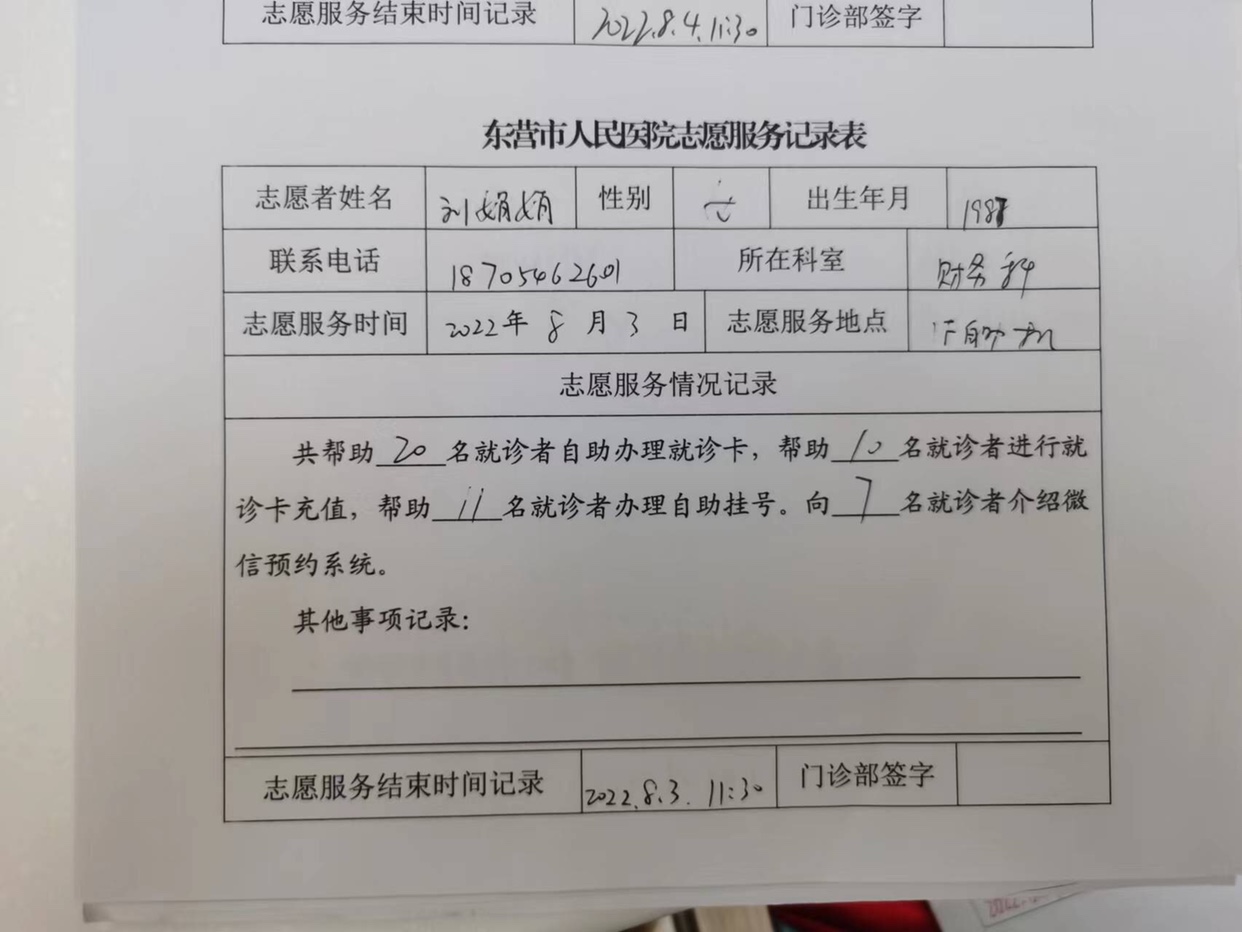 志愿服务结束时间记录 2022.8.4.11:30 门诊部签字
东营市人民医院志愿服务记录表
志愿者姓名 刘娟娟 性别 女 出生年月 1987
联系电话 18705462601 所在科室 财务科
志愿服务时间 2022年 8 月 3 日 志愿服务地点 自助机
志愿服务情况记录
共帮助 20 名就诊者自助办理就诊卡，帮助 10 名就诊者进行就
诊卡充值，帮助 11 名就诊者办理自助挂号。向 7 名就诊者介绍微
信预约系统。
其他事项记录：
志愿服务结束时间记录 2022.8.3. 11:30 门诊部签字